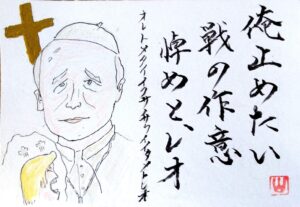 俺止めたい
戦の作意
悼めと、レオ
オレトメタイイクサノサクイイタメトレオ